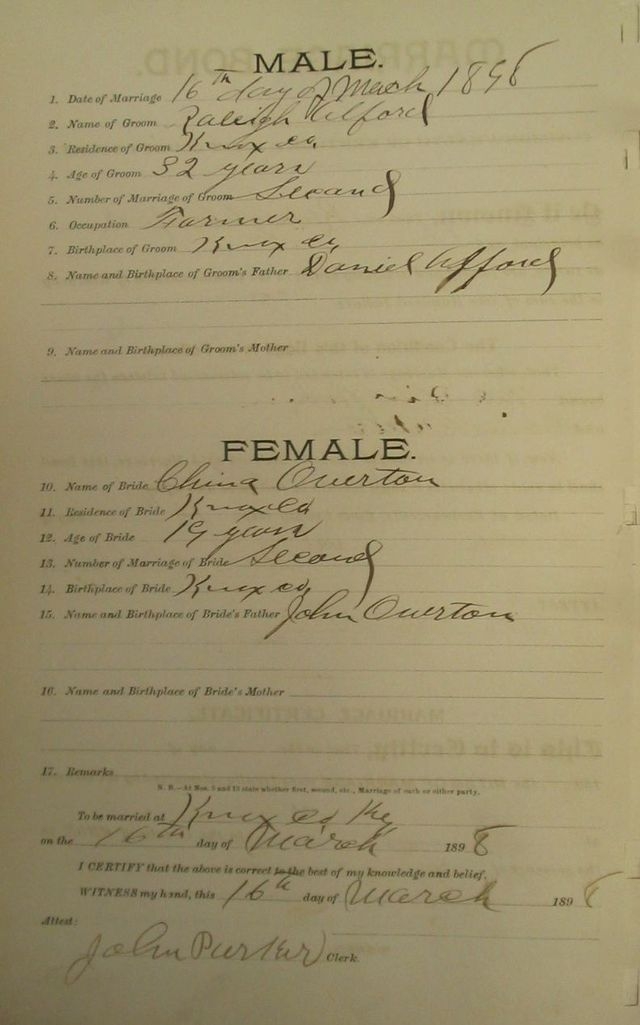 MALE.
1. Date of Marriage 16th day of March 1898
2. Name of Groom Raleigh Alford
3. Residence of Groom Knox co
4. Age of Groom 32 years
5. Number of Marriage of Groom Second
6. Occupation Farmer
7. Birthplace of Groom Knox co
8. Name and Birthplace of Groom's Father Daniel Alford
9. Name and Birthplace of Groom's Mother
FEMALE.
10. Name of Bride China Overton
11. Residence of Bride Knox co
12. Age of Bride 19 years
13. Number of Marriage of Bride Second
14. Birthplace of Bride Knox co
15. Name and Birthplace of Bride's Father John Overton
16. Name and Birthplace of Bride's Mother
17. Remarks
N. B.—At Nos. 5 and 13 state whether first, second, etc., Marriage of each or either party.
To be married at Knox co Ky
on the 16th day of March 1898
I CERTIFY that the above is correct to the best of my knowledge and belief.
WITNESS my hand, this 16th day of March 1898
Attest:
John Parker Clerk.